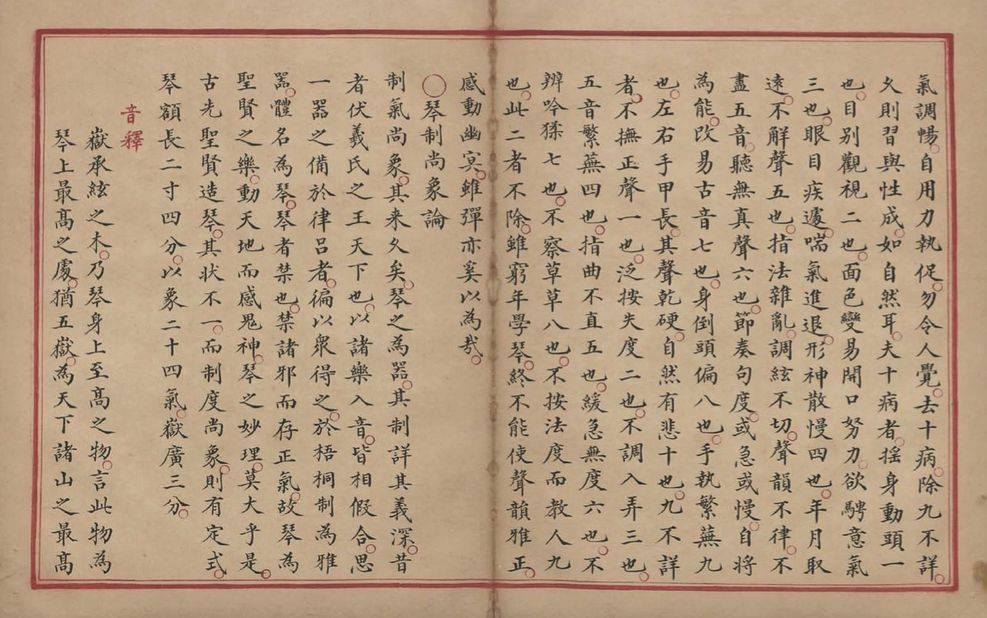 氣調暢。自用力執促。勿令人覺。去十病。除九不詳。
久則習與性成。如自然耳。夫十病者。搖身動頭一
也。目別觀視二也。面色變易開口努力。欲騁意氣
三也。眼目疾遽。喘氣進退。形神散慢四也。年月取
遠。不解聲五也。指法雜亂。調絃不切。聲韻不律。不
盡五音。聽無真聲六也。節奏句度。或急或慢。自將
為能。改易古音七也。身倒頭偏八也。手執繁蕪九
也。左右手甲長。其聲乾硬。自然有悲十也。九不詳
者。不撫正聲一也。泛按失度二也。不調入弄三也。
五音繁蕪四也。指曲不直五也。緩急無度六也。不
辨吟猱七也。不察草草八也。不按法度而教人九
也。此二者不除。雖窮年學琴。終不能使聲韻雅正。
感動幽㝠。雖彈亦奚以為㦲。
○琴制尚象論
制氣尚象。其来久矣。琴之為器。其制詳其義深。昔
者伏羲氏之王天下也。以諸樂入音。皆相假合。思
一器之備於律吕者。偏以衆得之。於梧桐制為雅
器。體名為琴。琴者禁也。禁諸邪而存正氣。故琴為
聖賢之樂。動天地而感鬼神。琴之妙理。莫大乎是。
古先聖賢造琴。其狀不一。而制度尚象。則有定式。
琴額長二寸四分。以象二十四氣。嶽廣三分。
音釋
嶽承絃之木。乃琴身上至髙之物。言此物為
琴上最髙之處。猶五嶽。為天下諸山之最髙